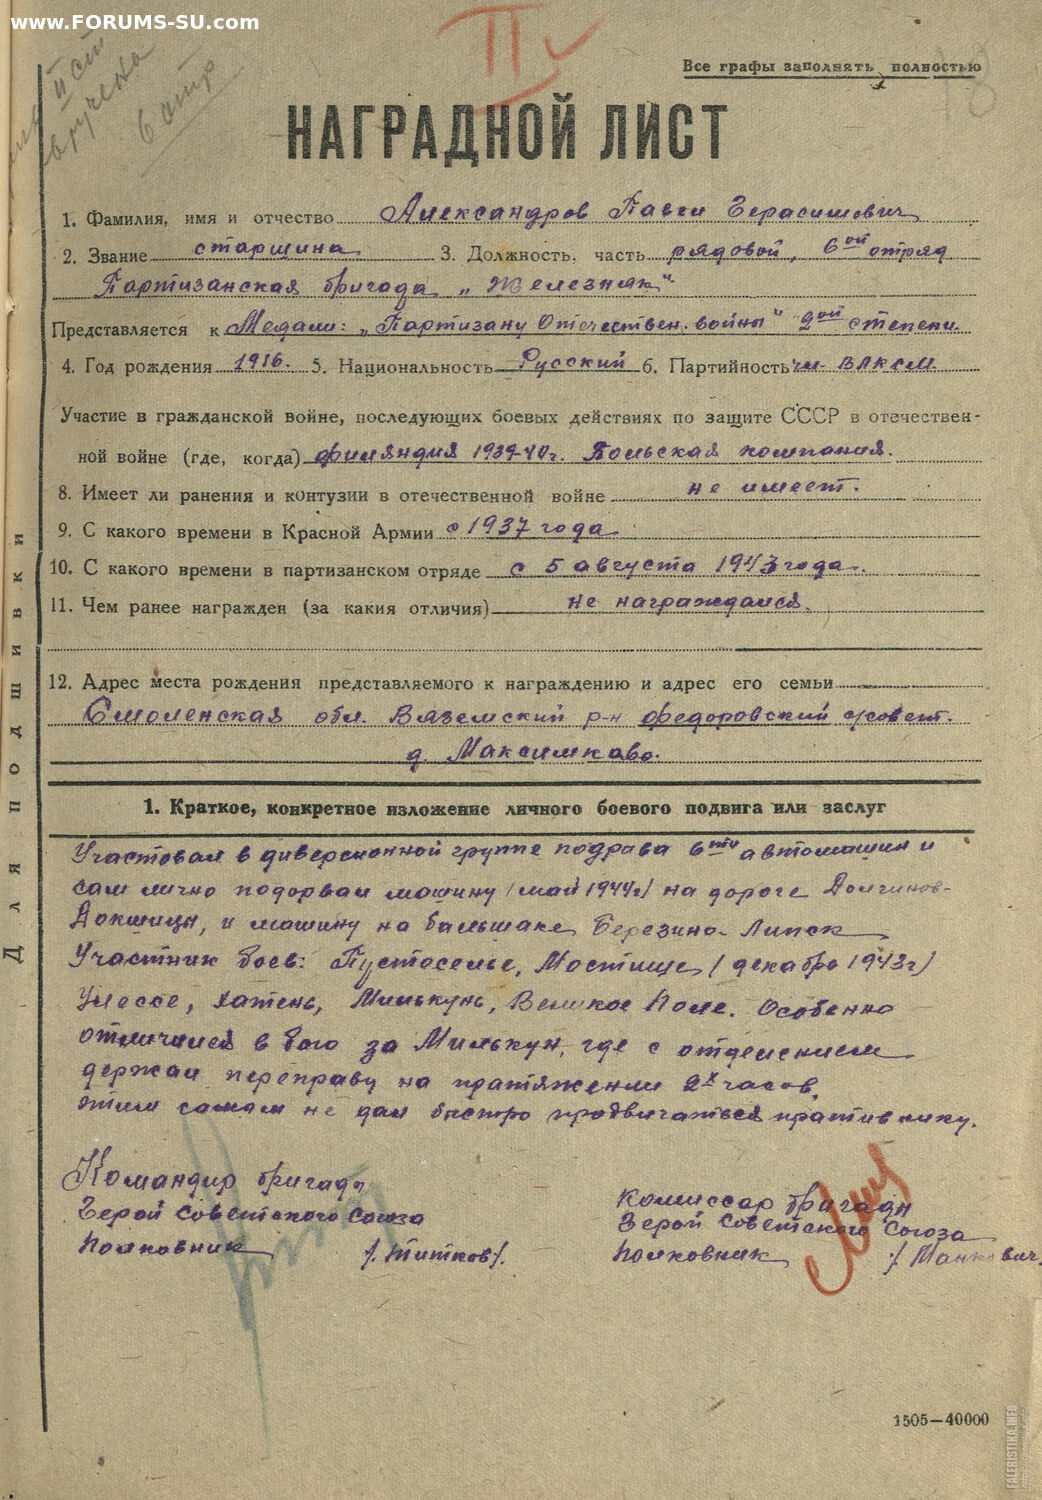 www.FORUMS-SU.com
II
II ст
вручена
в отр
Все графы заполнять полностью
НАГРАДНОЙ ЛИСТ
1. Фамилия, имя и отчество Александров Павел Герасимович
2. Звание старшина 3. Должность, часть рядовой, 6ой отряд
Партизанская бригада „Железняк"
Представляется к Медали: „Партизану Отечествен. войны" 2ой степени.
4. Год рождения 1916. 5. Национальность Русский 6. Партийность чл. ВЛКСМ
Участие в гражданской войне, последующих боевых действиях по защите СССР в отечествен-
ной войне (где, когда) финляндия 1939-40г. Польская компания.
8. Имеет ли ранения и контузии в отечественной войне не имеет.
9. С какого времени в Красной Армии с 1937 года
10. С какого времени в партизанском отряде с 5 августа 1943 года.
11. Чем ранее награжден (за какия отличия) не награждался.
12. Адрес места рождения представляемого к награждению и адрес его семьи
Смоленская обл. Вяземский р-н федоровский с/совет.
д. Максимково.
Для подшивки
1. Краткое, конкретное изложение личного боевого подвига или заслуг
Участовал в диверсионной группе подрыва 6ти автомашин и
сам лично подорвал машину (май 1944г.) на дороге Долгинов-
Докшицы, и машину на бальшаке Березино-Липск
Участник боев: Пустоселье, Мостище (декабрь 1943г)
Уместе, Хатень, Милькунь, Великое Поле. Особенно
отличился в бою за Милькун, где с отделением
держал переправу на пратяжении 2х часов,
этим самым не дал быстро продвигаться пративнику.
Командир бригады
Герой Советского Союза
Полковник /Титков/.
Комиссар бригады
Герой Советского Союза
Полковник /Манкович/
1505—40000
FALERISTIKA.INFO